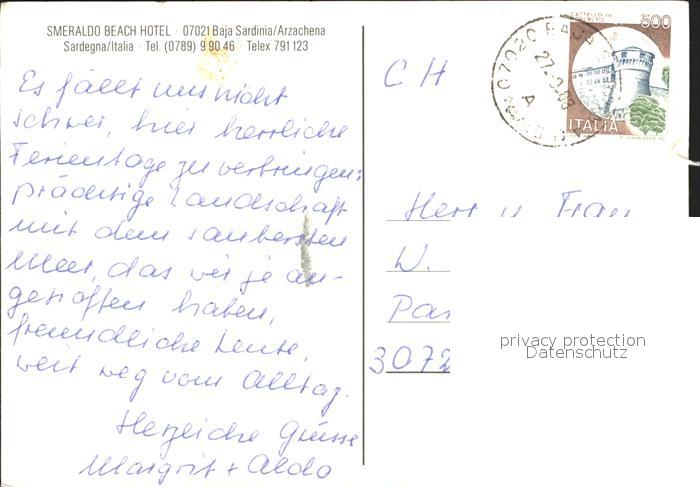 SMERALDO BEACH HOTEL · 07021 Baja Sardinia/Arzachena
Sardegna/Italia · Tel. (0789) 9 90 46 · Telex 791123
Es fällt uns nicht
schwer, hier herrliche
Ferientage zu verbringen:
prächtige Landschaft
mit dem saubersten
Meer, das wir je an-
getroffen haben,
freundliche Leute,
weit weg vom Alltag.
Herzliche Grüsse
Margrit + Aldo
500
ITALIA
07020 BAJA
A
CH
Herr u Frau
W.
3072
privacy protection
Datenschutz